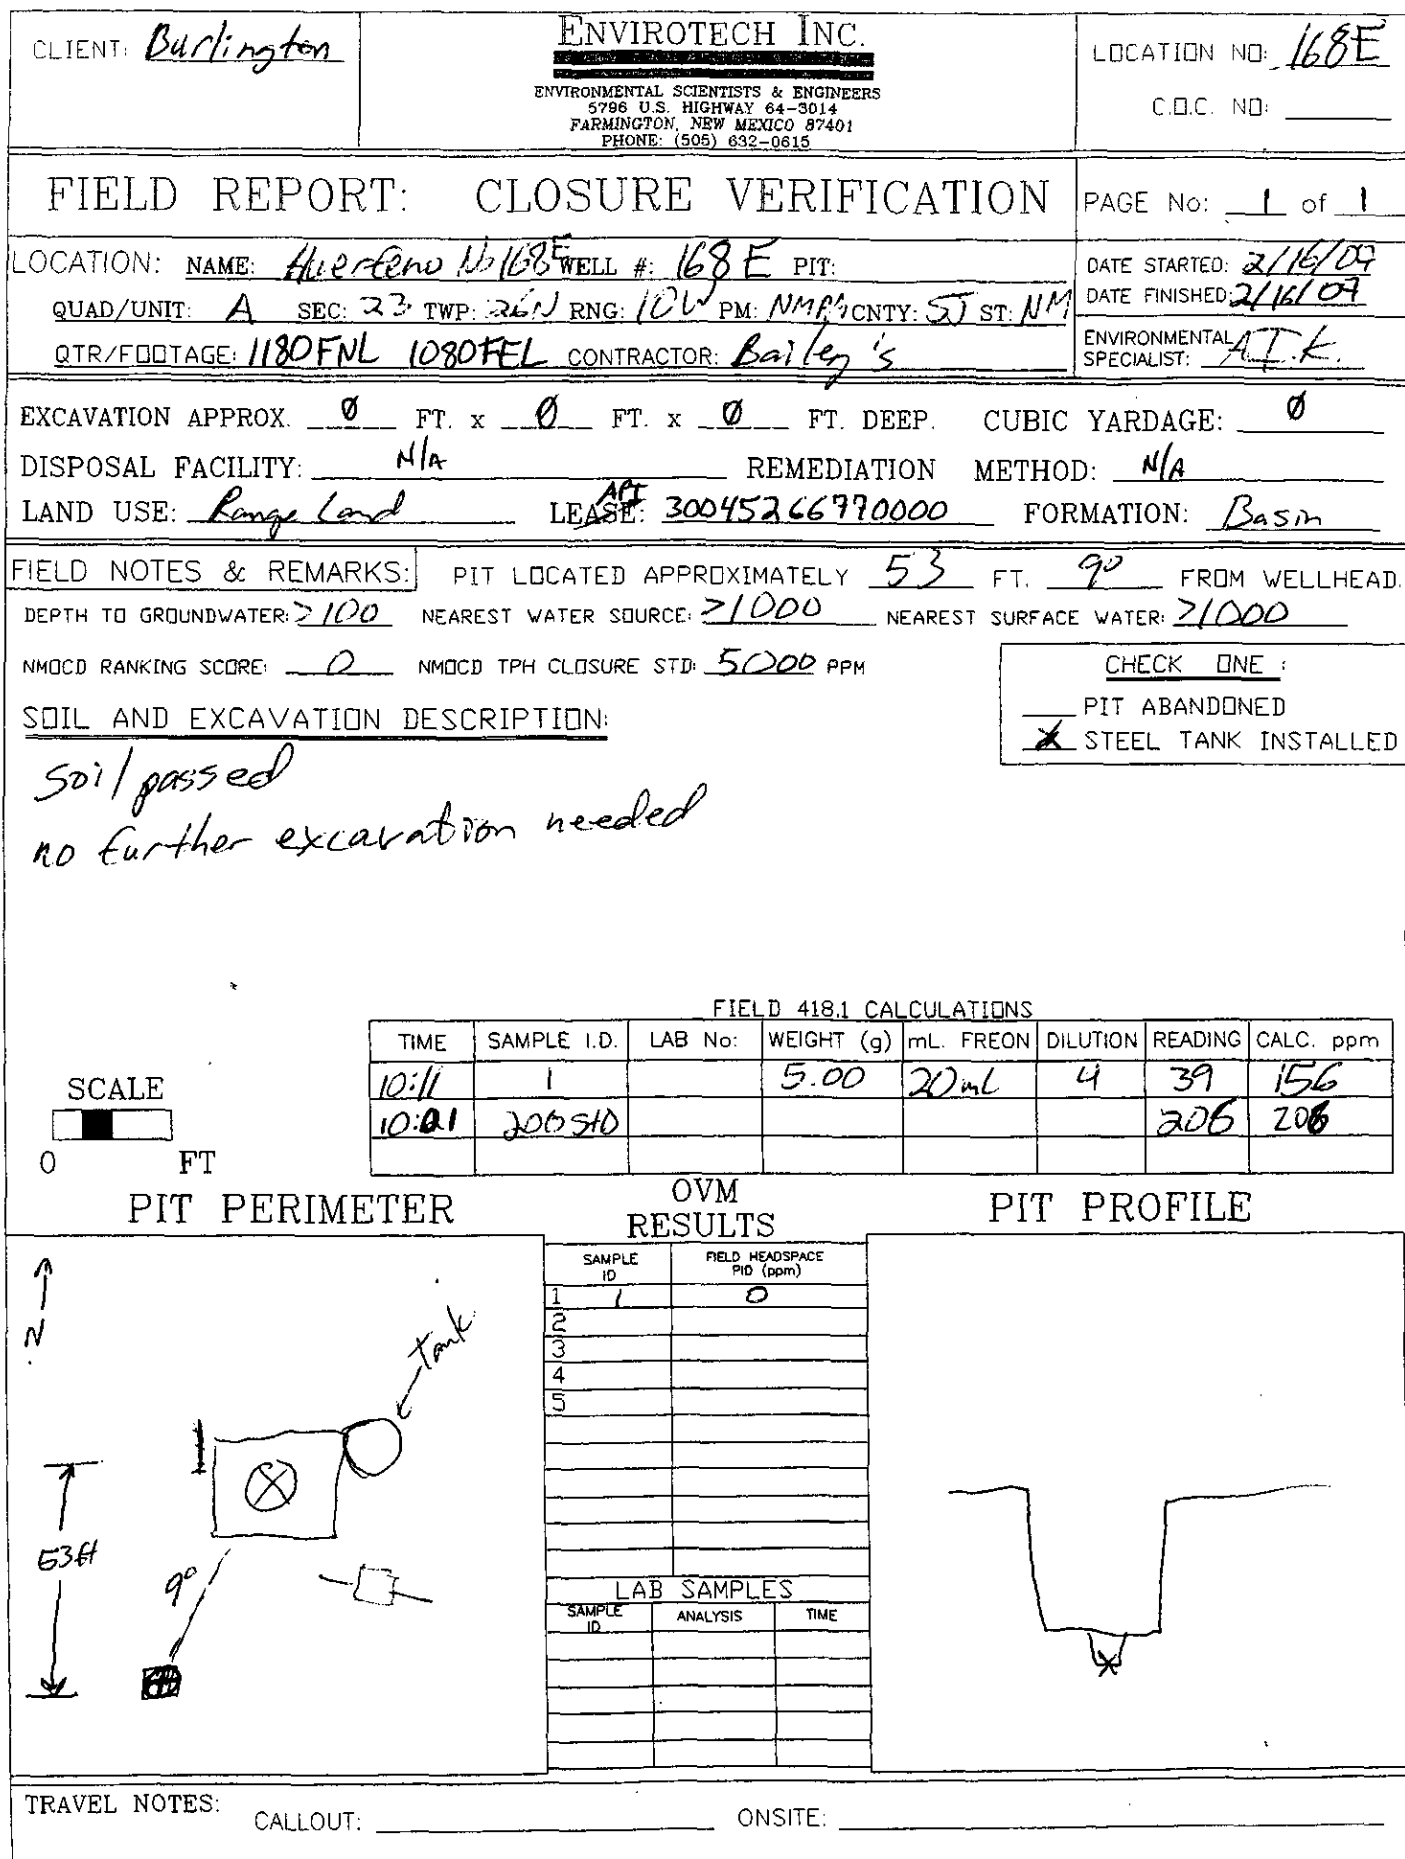 CLIENT: Burlington
ENVIROTECH INC.
ENVIRONMENTAL SCIENTISTS & ENGINEERS
5796 U.S. HIGHWAY 64-3014
FARMINGTON, NEW MEXICO 87401
PHONE: (505) 632-0615
LOCATION NO: 168E
C.O.C. NO:
FIELD REPORT: CLOSURE VERIFICATION
PAGE No: 1 of 1
LOCATION: NAME: Huerfeno No 168E WELL #: 168E PIT:
QUAD/UNIT: A SEC: 23 TWP: 26N RNG: 10W PM: NMPM CNTY: SJ ST: NM
QTR/FOOTAGE: 1180FNL 1080FEL CONTRACTOR: Bailey's
DATE STARTED: 2/16/07
DATE FINISHED: 2/16/07
ENVIRONMENTAL
SPECIALIST:
EXCAVATION APPROX. Ø FT. x Ø FT. x Ø FT. DEEP. CUBIC YARDAGE: Ø
DISPOSAL FACILITY: N/A REMEDIATION METHOD: N/A
LAND USE: Range Land LEASE: API 30045266770000 FORMATION: Basin
FIELD NOTES & REMARKS: PIT LOCATED APPROXIMATELY 53 FT. 9° FROM WELLHEAD.
DEPTH TO GROUNDWATER: >100 NEAREST WATER SOURCE: >1000 NEAREST SURFACE WATER: >1000
NMOCD RANKING SCORE: 0 NMOCD TPH CLOSURE STD: 5000 PPM
CHECK ONE :
PIT ABANDONED
X STEEL TANK INSTALLED
SOIL AND EXCAVATION DESCRIPTION:
Soil passed
no further excavation needed
FIELD 418.1 CALCULATIONS
TIME SAMPLE I.D. LAB No: WEIGHT (g) mL. FREON DILUTION READING CALC. ppm
10:11 1 5.00 20 mL 4 39 156
200 STD 206
SCALE
0 FT
PIT PERIMETER
OVM
RESULTS
PIT PROFILE
SAMPLE ID FIELD HEADSPACE PID (ppm)
1 1 0
2
3
4
5
N
tank
53ft
9°
LAB SAMPLES
SAMPLE ID ANALYSIS TIME
TRAVEL NOTES: CALLOUT: ONSITE: